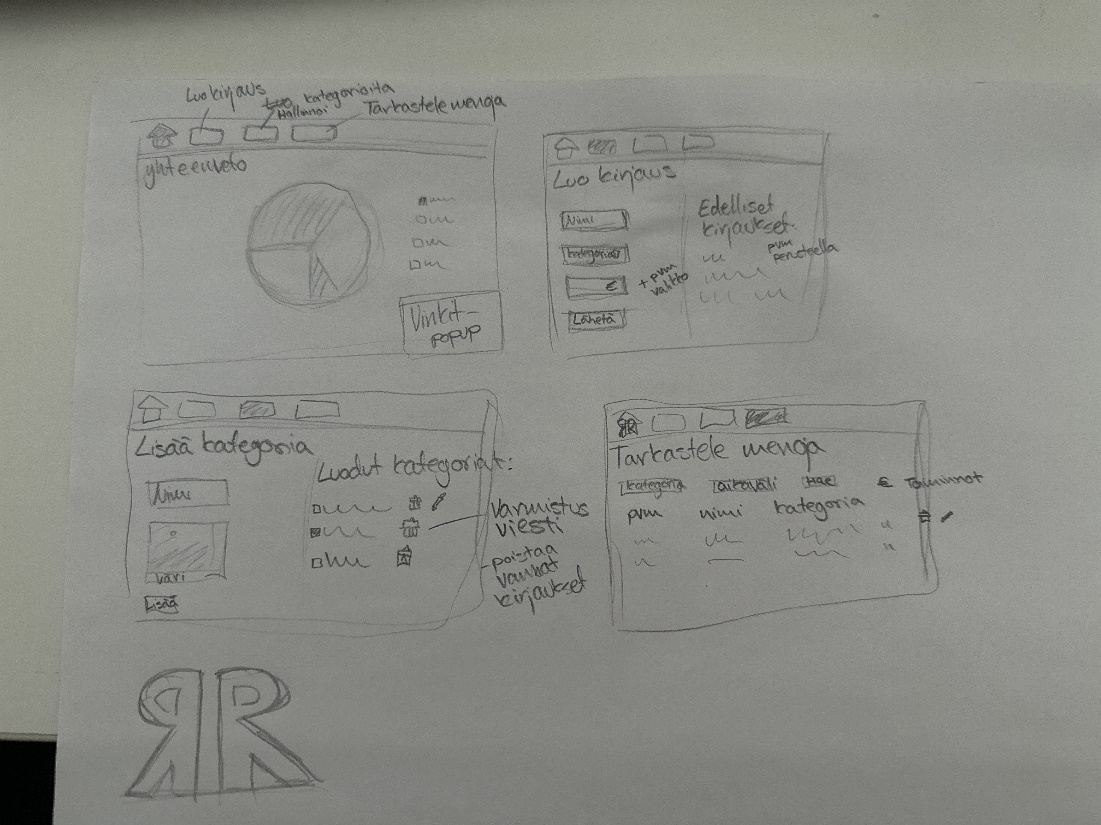 Luo kirjaus
Luo kategorioita
Hallinnoi
Tarkastele menoja
yhteenveto
Vinkit-
popup
Luo kirjaus
Nimi
kategoriat
€
+ pvm
valikko
Lähetä
Edelliset
kirjaukset:
pvm
perusteella
Lisää kategoria
Nimi
väri
Lisää
Luodut kategoriat:
varmistus
viesti
poistaa
vanhat
kirjaukset
Tarkastele menoja
kategoria Aikaväli Hae € Toiminnot
pvm nimi kategoria
RR